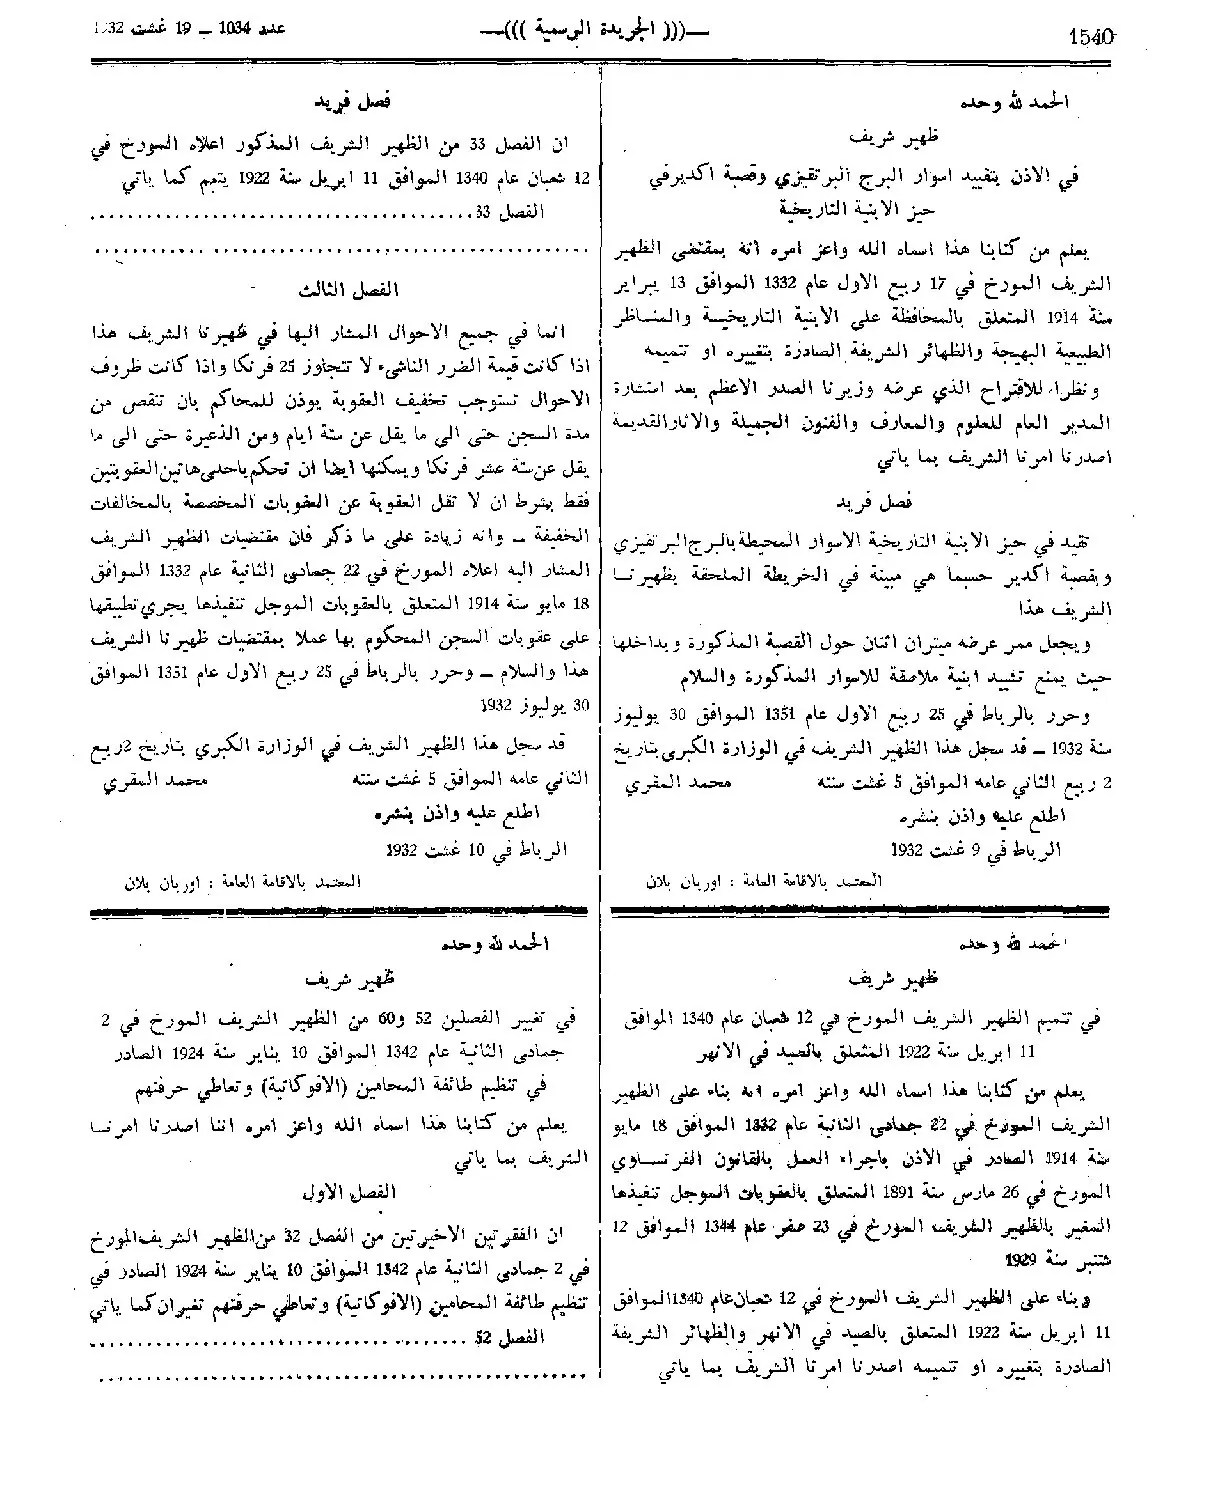 1540
—((( الجريدة الرسمية )))—
عدد 1034 — 19 غشت 1932
الحمد لله وحده
ظهير شريف
في الاذن بتقييد اسوار البرج البرتقيزي وقصبة اكديرفي
حيز الابنية التاريخية
يعلم من كتابنا هذا اسماه الله واعز امره انه بمقتضى الظهير
الشريف المورخ في 17 ربيع الاول عام 1332 الموافق 13 يبراير
سنة 1914 المتعلق بالمحافظة على الابنية التاريخية والمناظر
الطبيعية البهيجة والظهائر الشريفة الصادرة بتغييره او تتميمه
ونظرا للاقتراح الذي عرضه وزيرنا الصدر الاعظم بعد استشارة
المدير العام للعلوم والمعارف والفنون الجميلة والاثارالقديمة
اصدرنا امرنا الشريف بما ياتي
فصل فريد
تقيد في حيز الابنية التاريخية الاسوار المحيطة بالبرج البرتقيزي
وبقصبة اكدير حسبما هي مبينة في الخريطة الملحقة بظهيرنا
الشريف هذا
ويجعل ممر عرضه ميتران اثنان حول القصبة المذكورة وبداخلها
حيث يمنع تشييد ابنية ملاصقة للاسوار المذكورة والسلام
وحرر بالرباط في 25 ربيع الاول عام 1351 الموافق 30 يوليوز
سنة 1932 — قد سجل هذا الظهير الشريف في الوزارة الكبرى بتاريخ
2 ربيع الثاني عامه الموافق 5 غشت سنته محمد المقري
اطلع عليه واذن بنشره
الرباط في 9 غشت 1932
المعتمد بالاقامة العامة : اوربان بلان
الحمد لله وحده
ظهير شريف
في تتميم الظهير الشريف المورخ في 12 شعبان عام 1340 الموافق
11 ابريل سنة 1922 المتعلق بالصيد في الانهر
يعلم من كتابنا هذا اسماه الله واعز امره انه بناء على الظهير
الشريف المورخ في 22 جمادى الثانية عام 1332 الموافق 18 مايو
سنة 1914 الصادر في الاذن باجراء العمل بالقانون الفرنساوي
المورخ في 26 مارس سنة 1891 المتعلق بالعقوبات الموجل تنفيذها
المغير بالظهير الشريف المورخ في 23 صفر عام 1344 الموافق 12
شتنبر سنة 1929
وبناء على الظهير الشريف المورخ في 12 شعبان عام 1340 الموافق
11 ابريل سنة 1922 المتعلق بالصيد في الانهر والظهائر الشريفة
الصادرة بتغييره او تتميمه اصدرنا امرنا الشريف بما ياتي
فصل فريد
ان الفصل 33 من الظهير الشريف المذكور اعلاه المورخ في
12 شعبان عام 1340 الموافق 11 ابريل سنة 1922 يتمم كما ياتي
الفصل 33........................................
................................................
الفصل الثالث
انما في جميع الاحوال المشار اليها في ظهيرنا الشريف هذا
اذا كانت قيمة الضرر الناشيء لا تتجاوز 25 فرنكا واذا كانت ظروف
الاحوال تستوجب تخفيف العقوبة يوذن للمحاكم بان تنقص من
مدة السجن حتى الى ما يقل عن ستة ايام ومن الذعيرة حتى الى ما
يقل عن ستة عشر فرنكا ويمكنها ايضا ان تحكم باحدى هاتين العقوبتين
فقط بشرط ان لا تقل العقوبة عن العقوبات المخصصة بالمخالفات
الخفيفة — وانه زيادة على ما ذكر فان مقتضيات الظهير الشريف
المشار اليه اعلاه المورخ في 22 جمادى الثانية عام 1332 الموافق
18 مايو سنة 1914 المتعلق بالعقوبات الموجل تنفيذها يجري تطبيقها
على عقوبات السجن المحكوم بها عملا بمقتضيات ظهيرنا الشريف
هذا والسلام — وحرر بالرباط في 25 ربيع الاول عام 1351 الموافق
30 يوليوز 1932
قد سجل هذا الظهير الشريف في الوزارة الكبرى بتاريخ 2 ربيع
الثاني عامه الموافق 5 غشت سنته محمد المقري
اطلع عليه واذن بنشره
الرباط في 10 غشت 1932
المعتمد بالاقامة العامة : اوربان بلان
الحمد لله وحده
ظهير شريف
في تغيير الفصلين 52 و60 من الظهير الشريف المورخ في 2
جمادى الثانية عام 1342 الموافق 10 يناير سنة 1924 الصادر
في تنظيم طائفة المحامين (الافوكاتية) وتعاطي حرفتهم
يعلم من كتابنا هذا اسماه الله واعز امره اننا اصدرنا امرنا
الشريف بما ياتي
الفصل الاول
ان الفقرتين الاخيرتين من الفصل 32 من الظهير الشريف المورخ
في 2 جمادى الثانية عام 1342 الموافق 10 يناير سنة 1924 الصادر في
تنظيم طائفة المحامين (الافوكاتية) وتعاطي حرفتهم تغيران كما ياتي
الفصل 52 ........................................
................................................